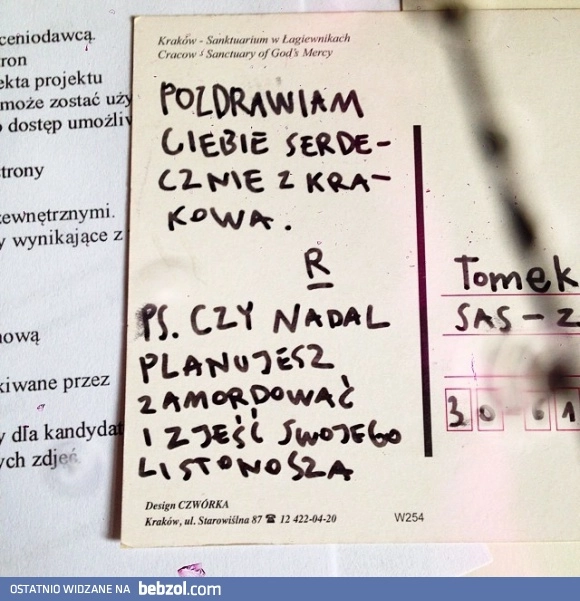 ceniodawcą.
tron
ekta projektu
może zostać uży
dostęp umożliw
trony
zewnętrznymi.
y wynikające z
ową
kiwane przez
y dla kandydat
ych zdjęć
Kraków - Sanktuarium w Łagiewnikach
Cracow - Sanctuary of God's Mercy
POZDRAWIAM
CIEBIE SERDE-
CZNIE Z KRA-
KOWA.
R
PS. CZY NADAL
PLANUJESZ
ZAMORDOWAĆ
I ZJEŚĆ SWOJEGO
LISTONOSZA
Design CZWÓRKA
Kraków, ul. Starowiślna 87 ☎ 12 422-04-20
W254
Tomek
SAS-Z
30-61
OSTATNIO WIDZANE NA bebzol.com